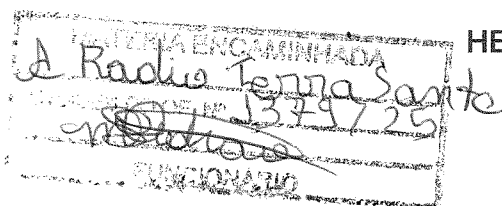 MATÉRIA ENCAMINHADA HE
A Radio Terra Santa
Nº 1379/25
FUNCIONÁRIO